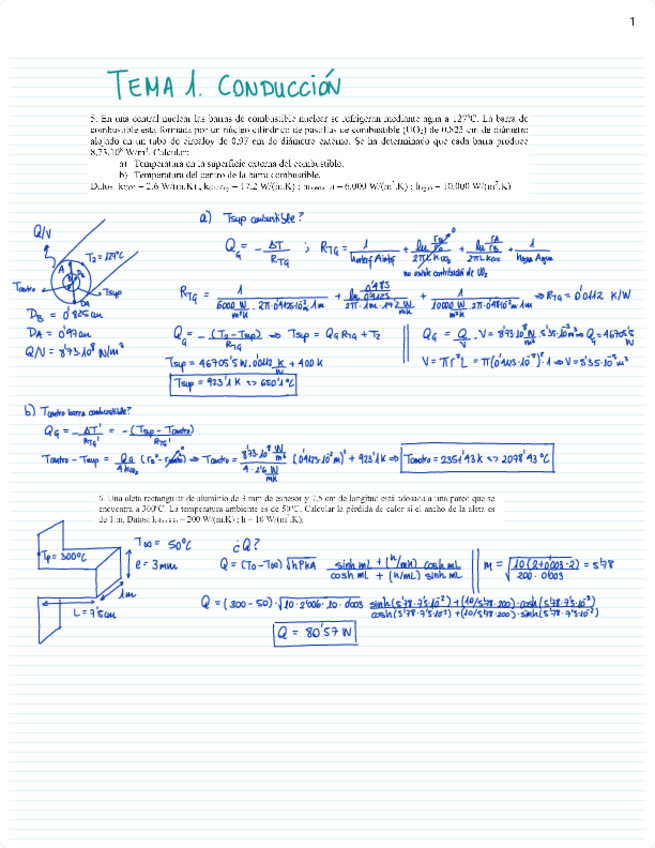 1
TEMA 1. CONDUCCIÓN
5. En una central nuclear las barras de combustible nuclear se refrigeran mediante agua a 127ºC. La barra de
combustible está formada por un núcleo cilíndrico de pastillas de combustible (UO₂) de 0,825 cm de diámetro
alojado en un tubo de circaloy de 0,97 cm de diámetro externo. Se ha determinado que cada barra produce
8,73.10⁸ W/m³. Calcular:
a) Temperatura en la superficie externa del combustible.
b) Temperatura del centro de la barra combustible.
Datos: = 2,6 W/(m.K) ; = 17,2 W/(m.K) ; = 6.000 W/(m².K) ; = 10.000 W/(m².K)
a) Tsup combustible?
Q/V
T₂ = 127ºC
A
B
Tcentro
Tsup
DA
Q_G = - ΔT / R_TG ; R_TG = 1 / hintf Aintf + ln / 2πL K_UO₂ + ln rA/rB / 2πL Kcirc + 1 / hagua Agua
no existe contribución de UO₂
D_B = 0'825 cm
D_A = 0'97 cm
Q/V = 8'73·10⁸ W/m³
R_TG = 1 / 6000 W/m²K · 2π·0'4125·10⁻²m·1m + ln 0'485/0'4125 / 2π·1m·17'2 W/mK + 1 / 10000 W/m²K ·2π·0'485·10⁻²m·1m ⇒ R_TG = 0'0112 K/W
Q_G = - (T₂ - Tsup) / R_TG ⇒ Tsup = Q_G R_TG + T₂
Q_G = Q/V · V = 8'73·10⁸ W/m³ · 5'35·10⁻⁵m³ ⇒ Q_G = 46705'5 W
Tsup = 46705'5 W · 0'0112 K/W + 400 K
V = πr²L = π(0'4125·10⁻²)²·1 ⇒ V = 5'35·10⁻⁵ m³
Tsup = 923'1 K <> 650'1 ºC
b) Tcentro barra combustible?
Q_G = - ΔT' / R_TG' = - (Tsup - Tcentro) / R_TG'
Tcentro - Tsup = Q_G / 4 K_UO₂ (r_B² - r²centro) ⇒ Tcentro = 8'73·10⁸ W/m³ / 4·2'6 W/mK (0'4125·10⁻²m)² + 923'1K ⇒ Tcentro = 2351'43 K <> 2078'43 ºC
6. Una aleta rectangular de aluminio de 3 mm de espesor y 7,5 cm de longitud está adosada a una pared que se
encuentra a 300ºC. La temperatura ambiente es de 50ºC. Calcular la pérdida de calor si el ancho de la aleta es
de 1 m. Datos: = 200 W/(m.K) ; h = 10 W/(m².K).
T∞ = 50ºC
¿Q?
Tp = 300ºC
e = 3mm
1m
L = 7'5cm
Q = (To - T∞) √hPKA sinh mL + (h/mk) cosh mL / cosh mL + (h/mk) sinh mL
m = √10(2+0'003·2) / 200·0'003 = 5'78
Q = (300 - 50)·√10·2'006·10·0'003 sinh(5'78·7'5·10⁻²)+(10/5'78·200)·cosh(5'78·7'5·10⁻²) / cosh(5'78·7'5·10⁻²)+(10/5'78·200)·sinh(5'78·7'5·10⁻²)
Q = 80'57 W